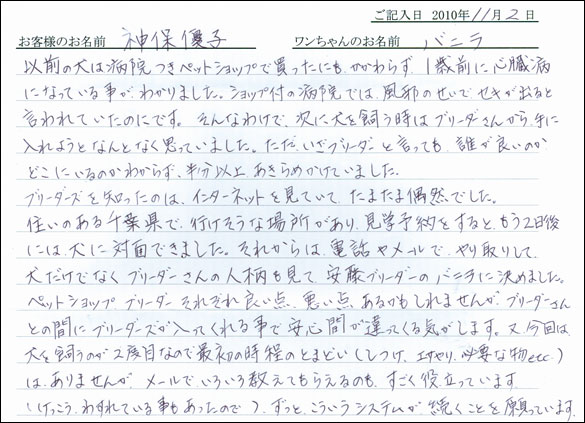 ご記入日 2010年 11月 2日
お客様のお名前 神保優子 ワンちゃんのお名前 バニラ
以前の犬は病院つきペットショップで買ったにも、かかわらず、1歳前に心臓病
になっている事が、わかりました。ショップ付の病院では、風邪のせいでセキが出ると
言われていたのにです。そんなわけで、次に犬を飼う時はブリーダーさんから、手に
入れようとなんとなく思っていました。ただ、いざブリーダーと言っても、誰が良いのか
どこにいるのかわからず、半分以上、あきらめかけていました。
ブリーダーズを知ったのは、インターネットを見ていて、たまたま偶然でした。
住いのある千葉県で、行けそうな場所があり、見学予約をすると、もう2日後
には、犬に対面できました。それからは、電話やメールで、やり取りして、
犬だけでなくブリーダーさんの人柄も見て、安藤ブリーダーのバニラに決めました。
ペットショップ、ブリーダーそれぞれ良い点、悪い点、あるかもしれませんが、ブリーダーさん
との間にブリーダーズが入ってくれる事で安心間が違ってくる気がします。又、今回は
犬を飼うのが2度目なので最初の時程のとまどい(しつけ、エサやり、必要な物etc.)
は、ありませんが、メールでいろいろ教えてもらえるのも、すごく役立っています
(けっこう、わすれている事もあったので)、ずっと、こういうシステムが、続くことを願っています。